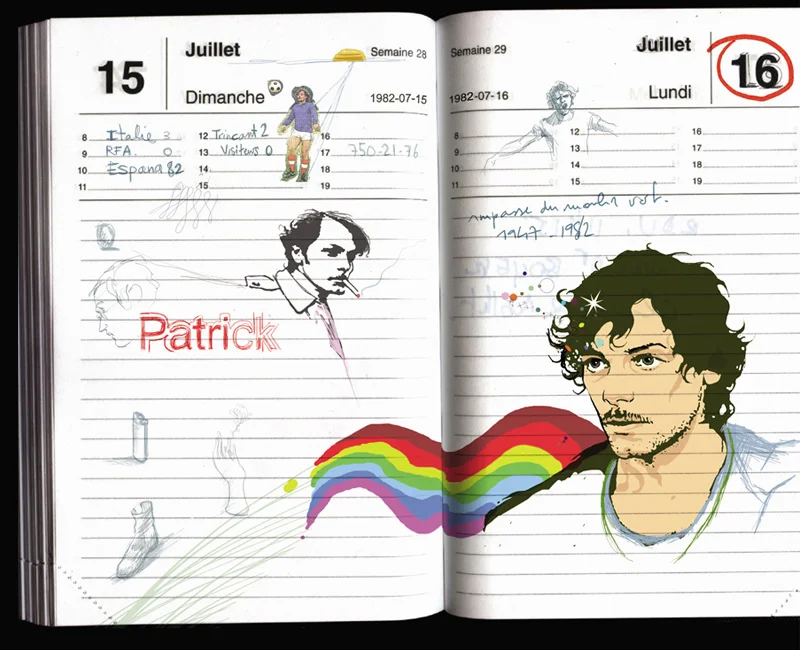 15
Juillet
Semaine 28
Dimanche
1982-07-15
8 Italie 3
9 RFA. 0
10 Espana 82
11
12 Trincant 2
13 Visiteurs 0
14
15
16
17 750-21-76
18
19
Patrick
Semaine 29
Juillet
16
1982-07-16
Lundi
8
9
10
11
12
13
14
15
16
17
18
19
impasse du moulin vert.
1947-1982